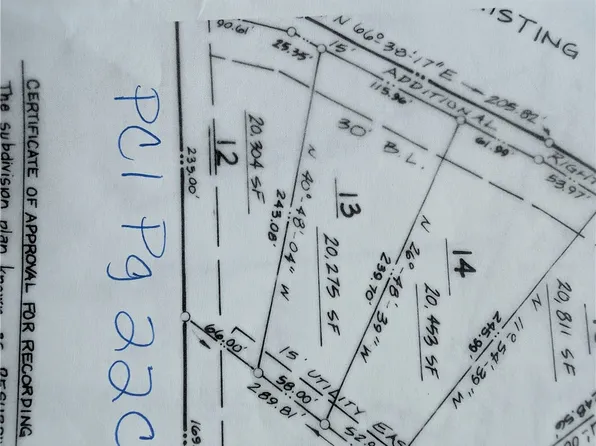 EXISTING
N 66° 38' 17" E
205.82'
90.61'
25.35'
15'
ADDITIONAL
RIGHT
113.96'
61.99'
53.97'
30' B.L.
12
20,304 SF
13
20,275 SF
14
20,453 SF
20,811 SF
N 40° 48' 04" W
243.08'
N 26° 48' 39" W
239.70'
N 11° 54' 39" W
245.99'
248.56'
235.00'
66.00'
15' UTILITY EAS
58.00'
289.81'
52.9
169
PC1 Pg 220
CERTIFICATE OF APPROVAL FOR RECORDING
The subdivision plan known as